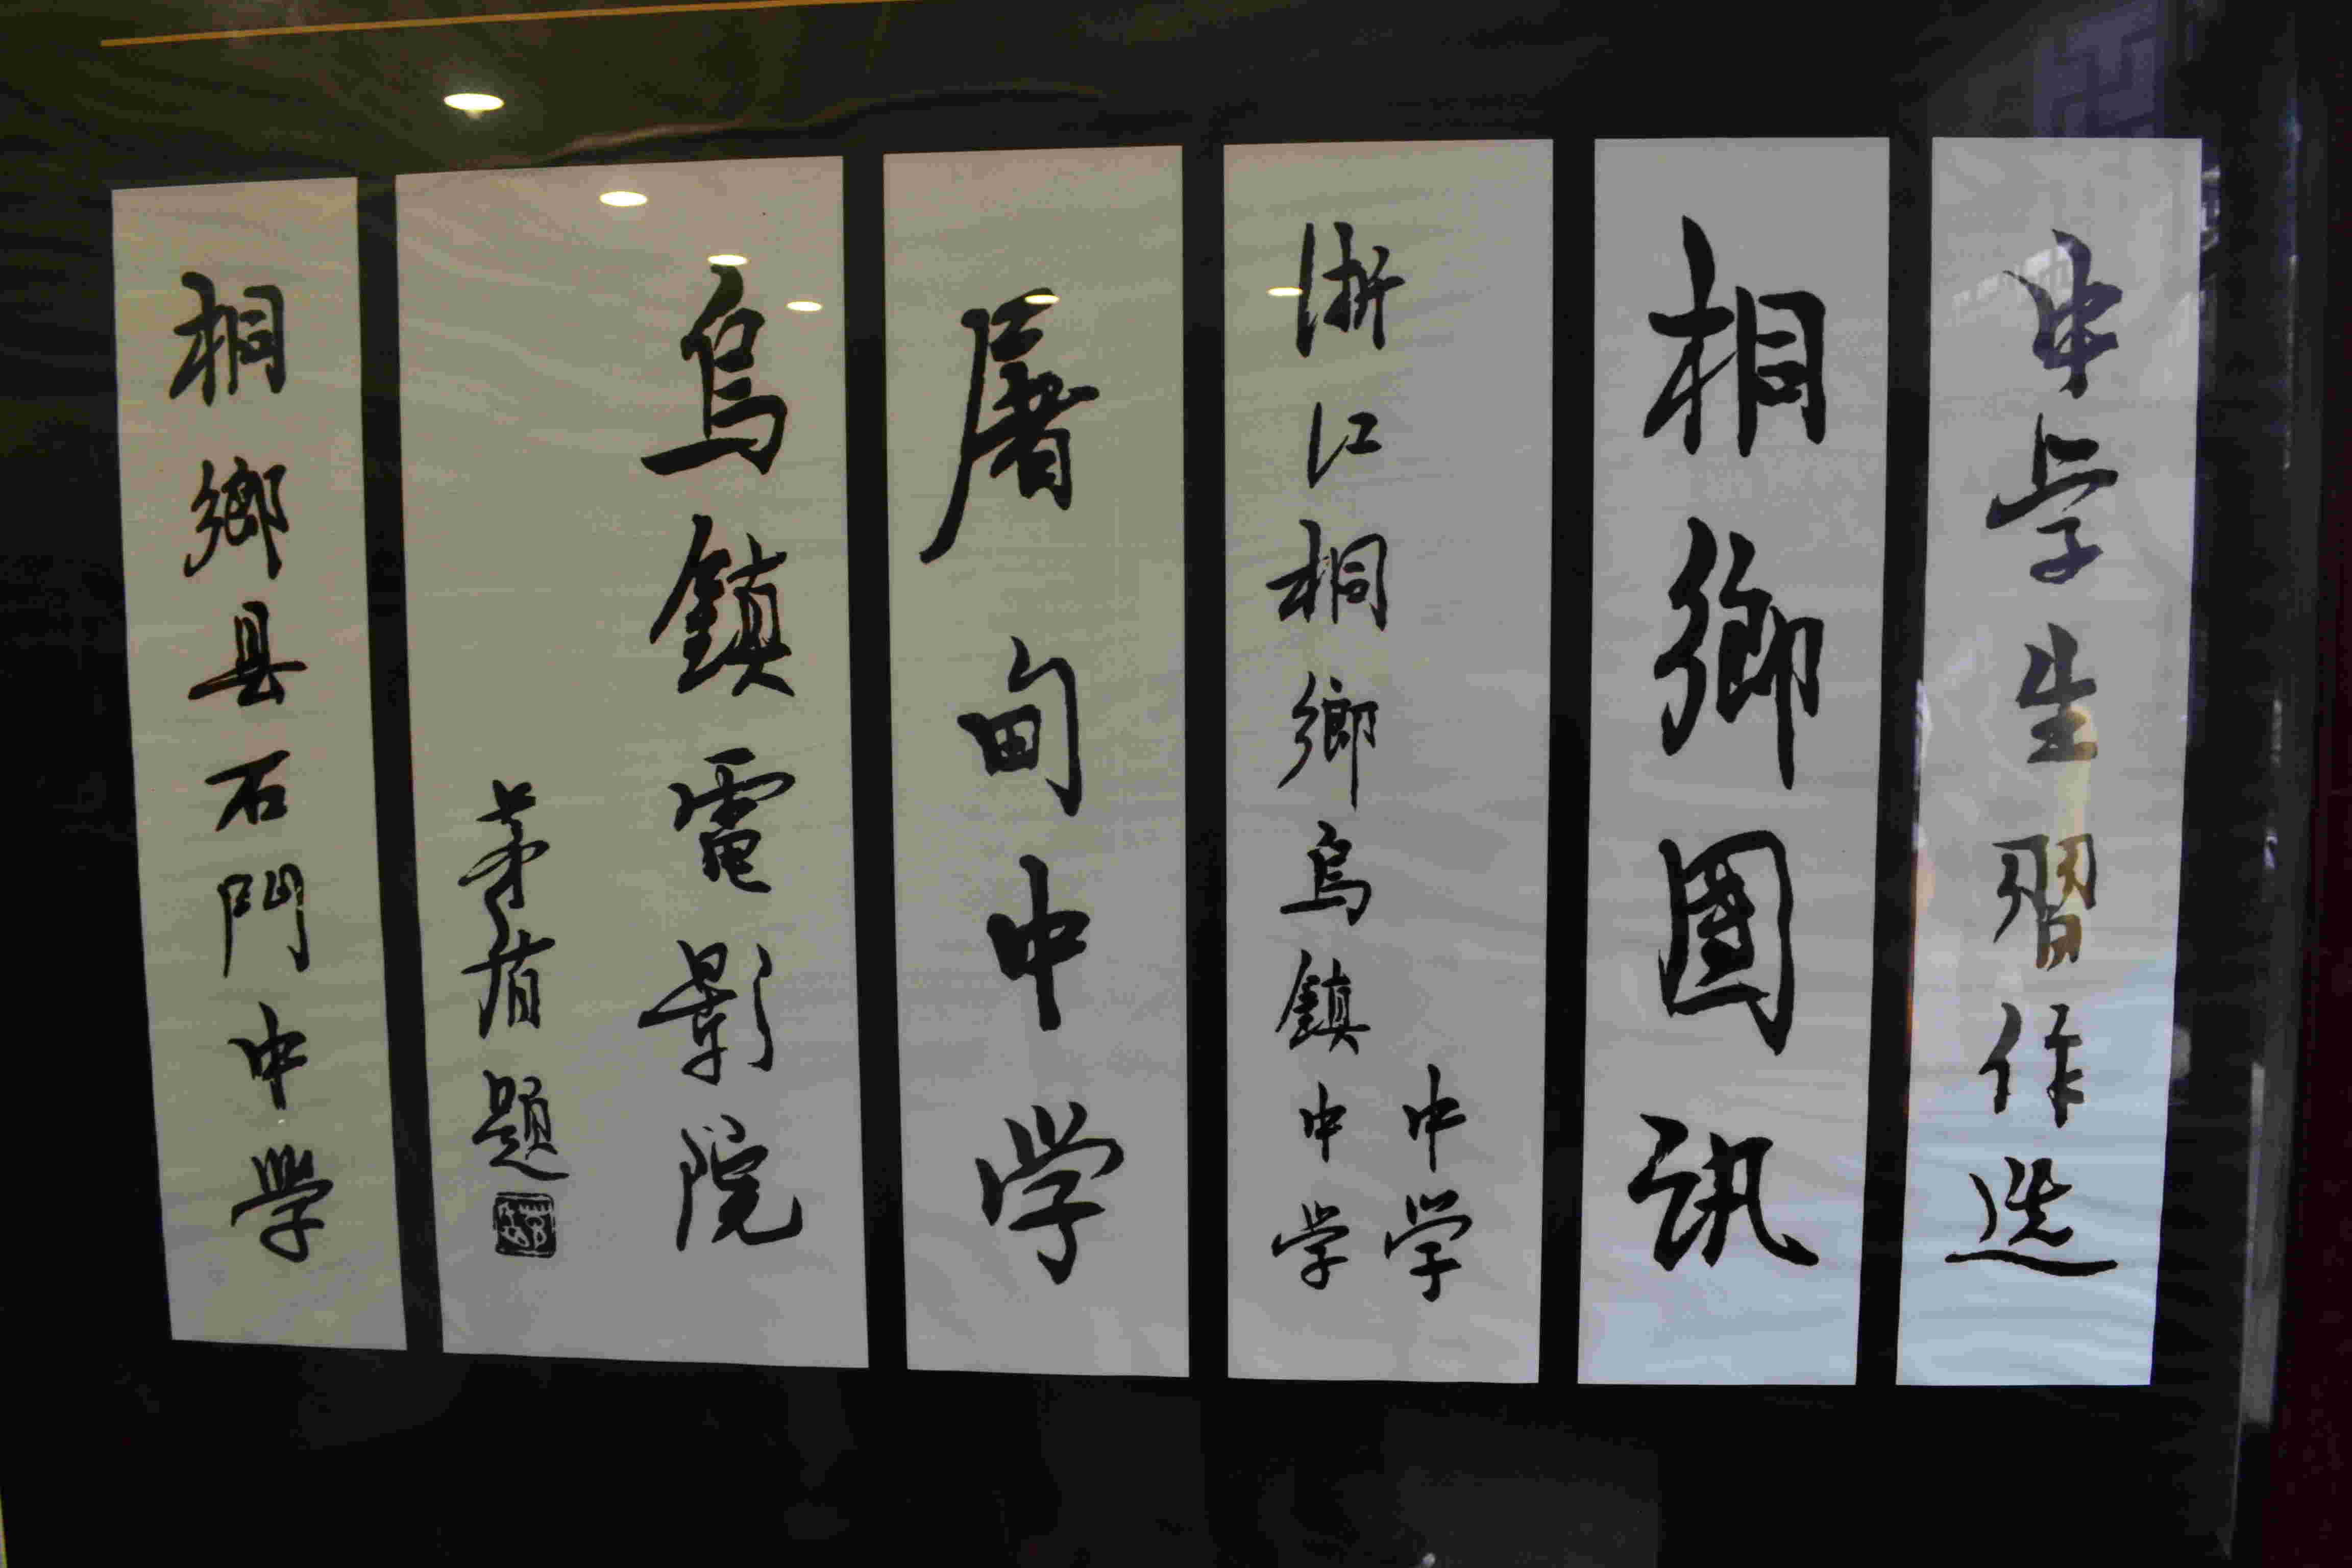 中学生習作选
桐鄉團訊
中学
浙江桐鄉烏鎮中学
屠甸中学
烏鎮電影院
茅盾題
桐鄉县石門中學